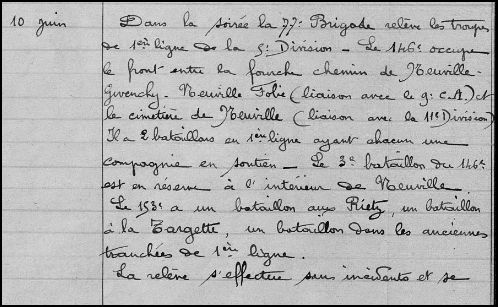 10 juin Dans la soirée la 77e Brigade relève les troupes
de 1ère ligne de la 5e Division - Le 146e occupe
le front entre la fourche chemin de Neuville-
Givenchy - Neuville Folie (liaison avec le 9e C.A.) et
le cimetière de Neuville (liaison avec la 11e Division)
Il a 2 bataillons en 1ère ligne ayant chacun une
compagnie en soutien - Le 3e bataillon du 146e
est en réserve à l'intérieur de Neuville.
Le 153e a un bataillon aux Rietz, un bataillon
à la Targette, un bataillon dans les anciennes
tranchées de 1ère ligne.
La relève s'effectue sans incidents et se